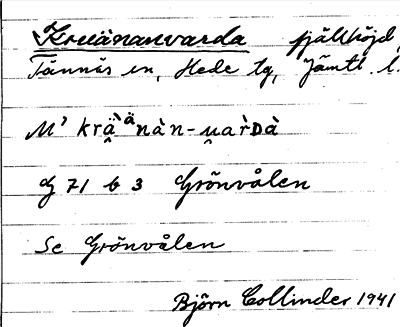 Kruänanvarda fjällhöjd,
Tännäs sn, Hede tg, Jämtl. l.
M' krä̀änàn-u̯arDà
G 71 b 3 Grönvålen
Se Grönvålen
Björn Collinder 1941